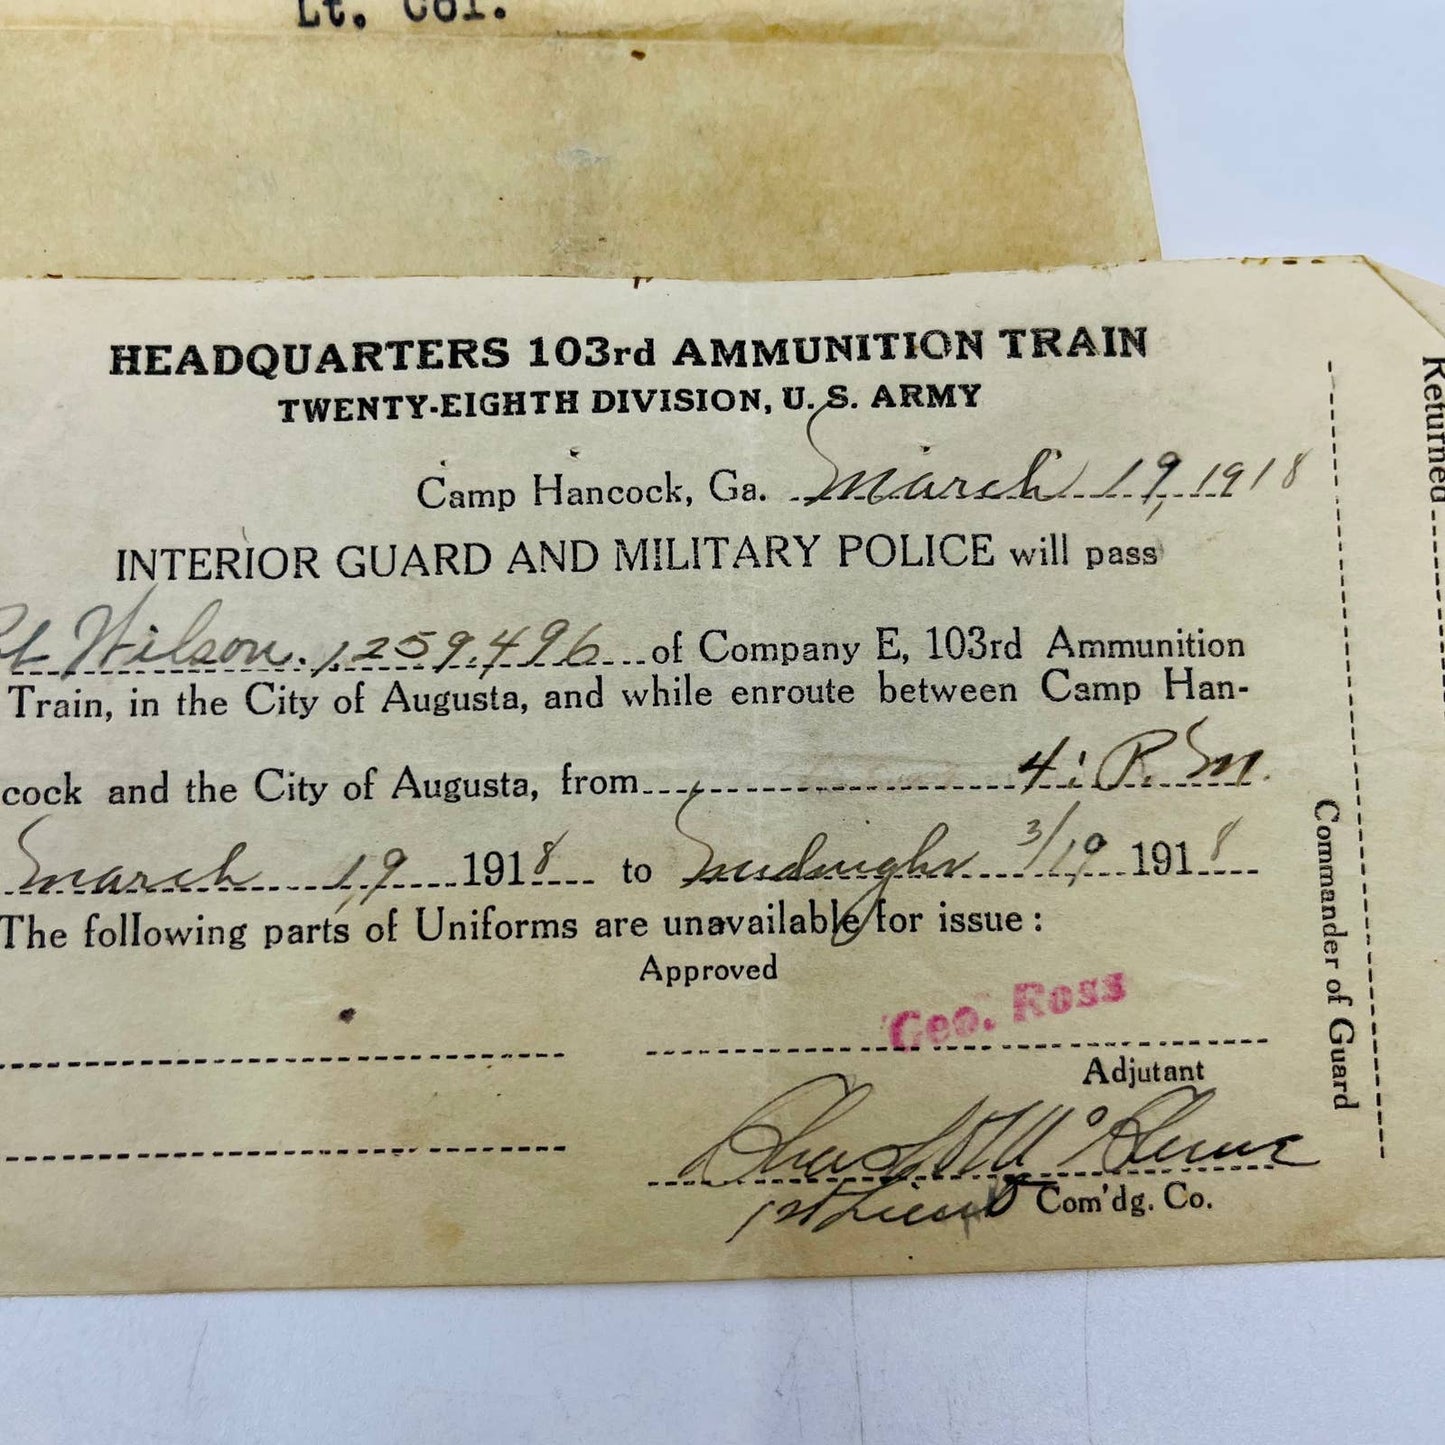 Lt. Col.
HEADQUARTERS 103rd AMMUNITION TRAIN
TWENTY-EIGHTH DIVISION, U. S. ARMY
Camp Hancock, Ga. March 19, 1918
INTERIOR GUARD AND MILITARY POLICE will pass
Wilson. 1,259,496 of Company E, 103rd Ammunition
Train, in the City of Augusta, and while enroute between Camp Han-
cock and the City of Augusta, from 4: P.M.
March 19, 1918 to Midnight 3/19 1918
The following parts of Uniforms are unavailable for issue:
Approved
Geo. Ross
Adjutant
1st Lieut Com'dg. Co.
Commander of Guard
Returned